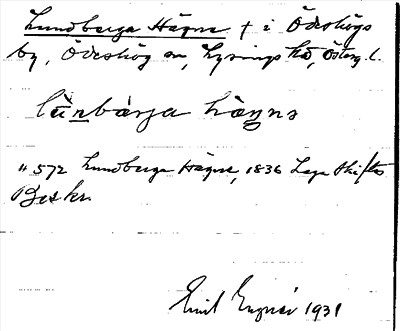 Lundberga Hägne t i Ödeshögs
by, Ödeshög sn, Lysings hd, Österg. l.
lu̇nbȧrja hä̀ŋns
" 572 Lundberga Hägne, 1836 Laga Skiftes
Beskr.
Emil 1931